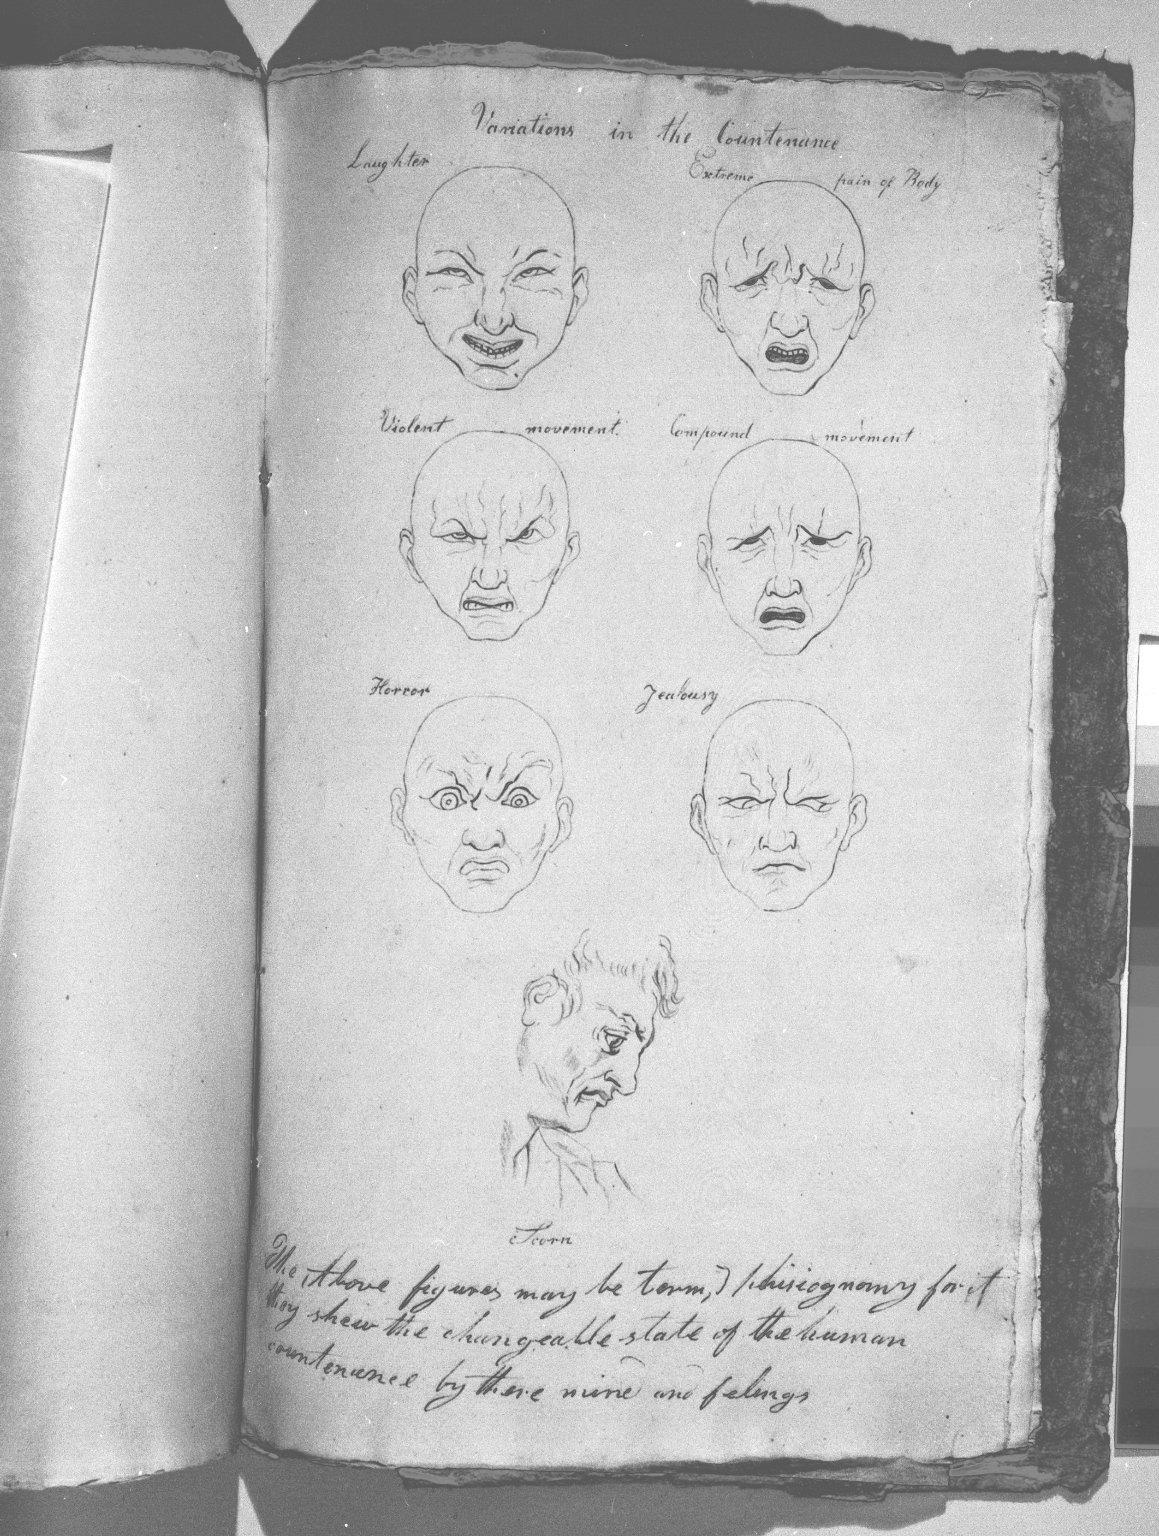 Variations in the Countenance
Laughter
Extreme pain of Body
Violent movement.
Compound movement
Horror
Jealousy
Scorn
The Above figures may be term,d phisiognomy for it
they shew the changeable state of the human
countenance by there mind and felings